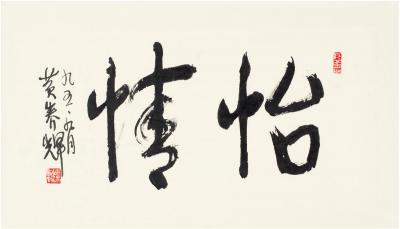 怡情
九五 月
黄养辉